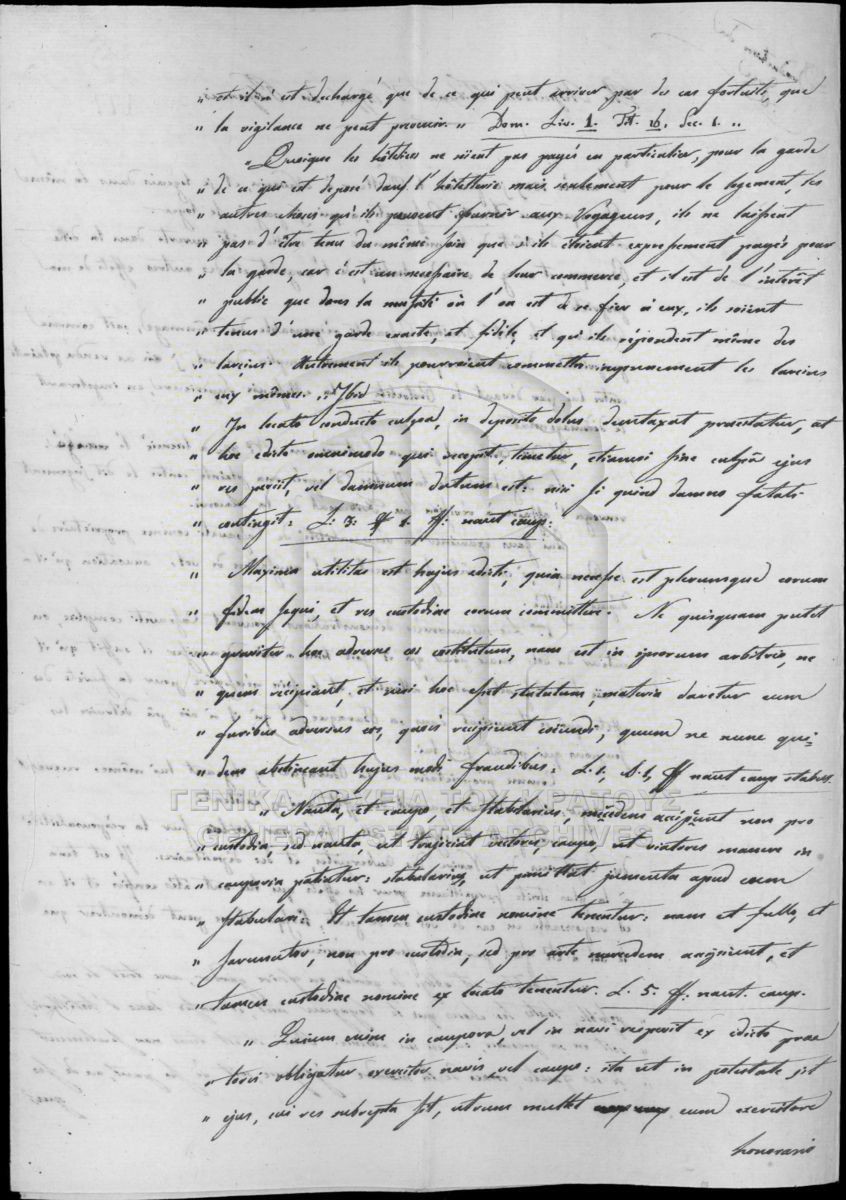 „ et il n'est déchargé que de ce qui peut arriver par des cas fortuits, que
„ la vigilance ne peut prevenir. „ Dom. Liv. 1. Tit. 16. Sec. 1. „
„ Quoique les hôteliers ne soient pas payés en particulier, pour la garde
„ de ce qui est deposé dans l'hôtellerie mais seulement pour le logement, les
„ autres choses qu'ils peuvent fournir aux Voyageurs, ils ne laissent
„ pas d'être tenu du même soin que s'ils étoient expressement payés pour
„ la garde, car c'est un necessaire de leur commerce, et il est de l'intérêt
„ public que dans la necessité où l'on est de se fier à eux, ils soient
„ tenus d'une garde exacte, et fidèle, et qu'ils répondent même des
„ larcins. Autrement ils pourraient commettre impunement les larcins
„ eux mêmes. „ Ibid
„ In locato conducto culpa, in deposito dolus dumtaxat praestatur, at
„ hoc edicto omnimodo qui recepit, tenetur, etiamsi sine culpâ ejus
„ res periit, vel damnum datum est: nisi si quid damno fatali
„ contingit: L. 3. § 1. ff. naut caup.
„ Maxima utilitas est hujus edicti, quia necesse est plerumque eorum
„ fidem sequi, et res custodiae eorum committere. Ne quisquam putet
„ graviter hoc adversus eos constitutum, nam est in ipsorum arbitrio, ne
„ quem recipiant, et nisi hoc esset statutum, materia daretur cum
„ furibus adversus eos, quos recipiunt coëundi, quum ne nunc qui=
„ dem abstineant hujus modi fraudibus: L. 1, § 1, ff naut caup stabul.
„ Nauta, et caupo, et stabularius, mercedem accipiunt non pro
„ custodia, sed nauta, ut trajiciat vectores, caupo, ut viatores manere in
„ cauponia patiatur: stabularius, ut permittat jumenta apud eum
„ stabulari: Et tamen custodiae nomine tenentur: nam et fullo, et
„ sarcinator, non pro custodia, sed pro arte mercedem accipiunt, et
„ tamen custodiae nomine ex locato tenentur. L. 5. ff. naut. caup.
„ Quicum enim in caupona, vel in navi res perit ex edicto prae
„ toris obligatur exercitor navis, vel caupo: ita ut in potestate sit
„ ejus, cui res subrepta sit, utrum mallet cum exercitore
honorario
ΓΕΝΙΚΑ ΑΡΧΕΙΑ ΤΟΥ ΚΡΑΤΟΥΣ
GENERAL STATE ARCHIVES